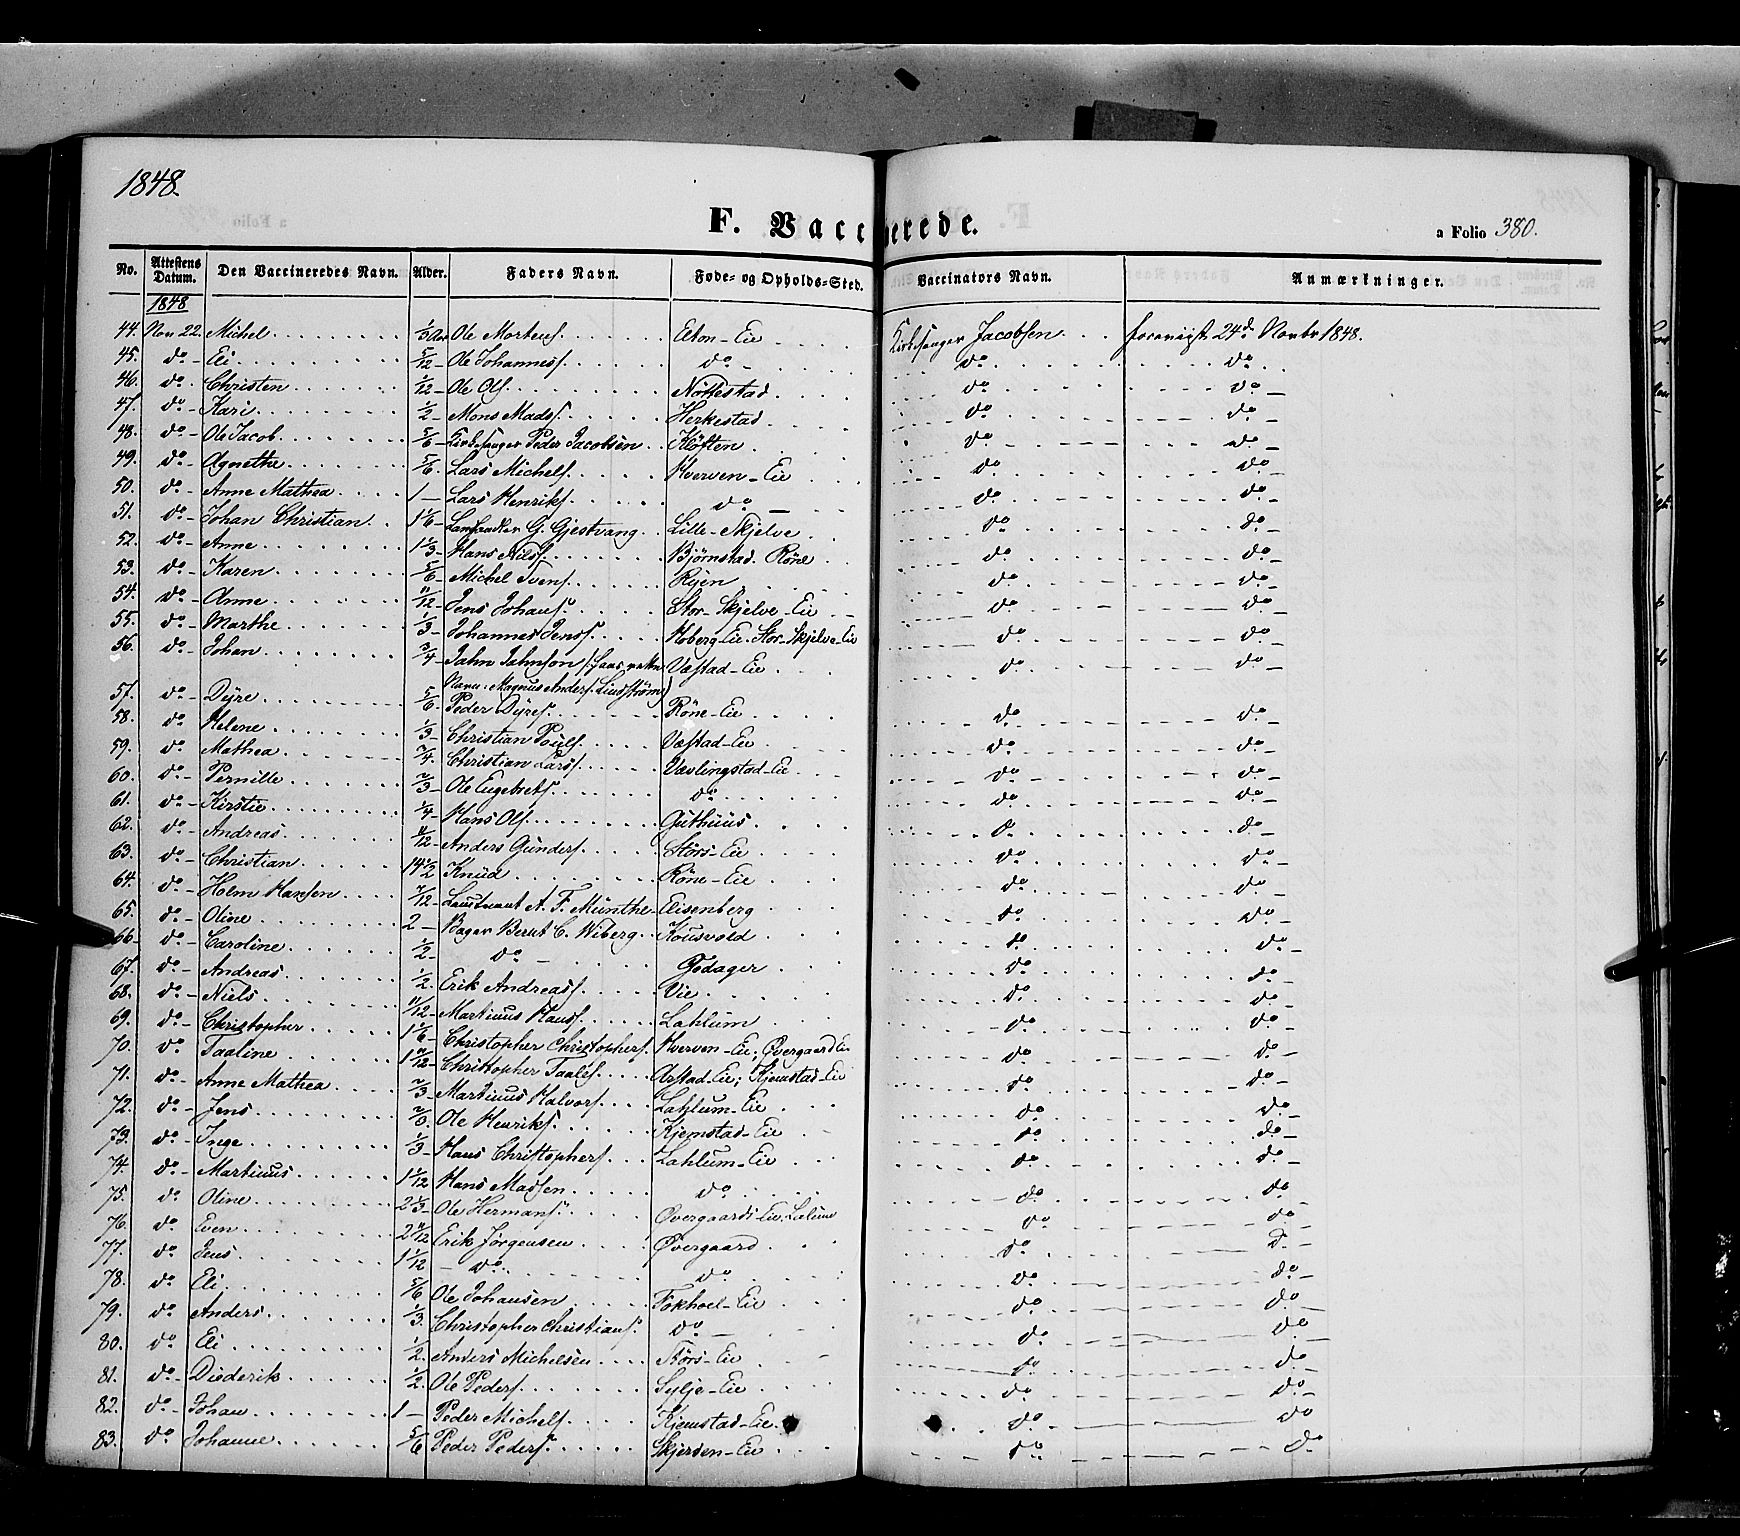 1848.
F. Vaccinerede.
a Folio 380.
No. Attestens Datum. Den Vaccineredes Navn. Alder. Faders Navn. Føde- og Opholds-Sted. Vaccinators Navn. Anmærkninger.
1848
44. Nov 22. Michel 1/3 Aar Ole Mortens. Eie Kirkesanger Jacobsen 24d Novbr 1848.
45. do - Eli 5/12 - Ole Johanness. do - do do
46. do - Christen 1/12 - Ole Ols. Nöttestad do do -
47. do - Kari 1/2 - Mons Mads. Herkestad do do -
48. do - Ole Jacob 5/6 - Kirkesanger Peder Jacobsen Klöften do do -
49. do - Agnethe 5/6 - Lars Michels. Hverven-Eie do do -
50. do - Anne Mathea 1 - Lars Henriks. do - do do -
51. do - Johan Christian 1 1/6 - G. Gjestvang Lille-Skjelve do do -
52. do - Anne 1 1/3 - Hans Nils. Bjørnstad. Röne do do -
53. do - Karen 5/6 - Michel Svens. Ryen do do -
54. do - Anne 11/12 - Jens Johans. Stor-Skjelve-Eie do do -
55. do - Marthe 1/3 - Johannes Jens. Hoberg-Eie. Stor-Skjelve-Eie do do -
56. do - Johan 3/4 - Jahn Jahnson Væstad-Eie do do -
Navn: Magnus Anders. Lindström)
57. do - Dyre 5/6 - Peder Dyres. Röne-Eie do do -
58. do Helene 1/3 - Christian Pouls. Væstad-Eie do do -
59. do Mathea 3/4 - Christian Lars. Vævlingstad-Eie do do -
60. do - Pernille 2/3 - Ole Engebrets. do do do -
61. do - Kirstie 1/4 - Hans Ols. Guthuus do do -
62. do - Andreas 11/12 - Anders Gunders. Störs-Eie do do -
63. do - Christian 14 1/2 - Knud Röne-Eie do do -
64. do - Holm Hansen 7/12 - Lieutnant A. F. Münthe Elisenberg do do -
65. do - Oline 2 - Bager Bernt C. Wiberg Kousvold do do -
66 do - Caroline 1/2 - do - Godager do do -
67. do - Andreas 1/2 - Erik Andreas. Vie do do -
68. do - Niels 11/12 - Martinus Hans. Lahlum do do -
69. do - Christopher 1 1/6 - Christopher Christophers. Hverven-Eie, ØvergaardEie do do -
70. do Taaline 1 7/12 - Christopher Taalis. Arstad-Eie; Kjemstad-Eie do do -
71. do - Anne Mathea 2/3 - Martinus Halvors. Lahlum-Eie do do -
72. do - Jens Ole Henriks. Kjemstad-Eie do do -
73. do - Inge 1/3 - Hans Christophers. Lahlum-Eie do do -
74. do - Martinus 1 1/12 Hans Madsen do do do -
75. do Oline 2 1/3 - Ole Hermans. Øvergaards-Eie, Lalum do do -
76. do - Even Erik Jørgensen Øvergaard do do -
77. do - Jens 1 1/12 - do do do do -
78. do - Eli 5/6 Ole Johansen Fokhoel-Eie do do -
79. do - Anders 1/3. Christopher Christians. do - do do -
80. do - Eli 1/2. Anders Michelsen Störs-Eie do do
81. do - Diederik 1/2. Ole Peders. Sylje-Eie do do -
82. do - Johan 1 - Peder Michels. Kjemstad-Eie do do -
83. do Johanne 5/6 Peder Peders. Skjerden-Eie do do -